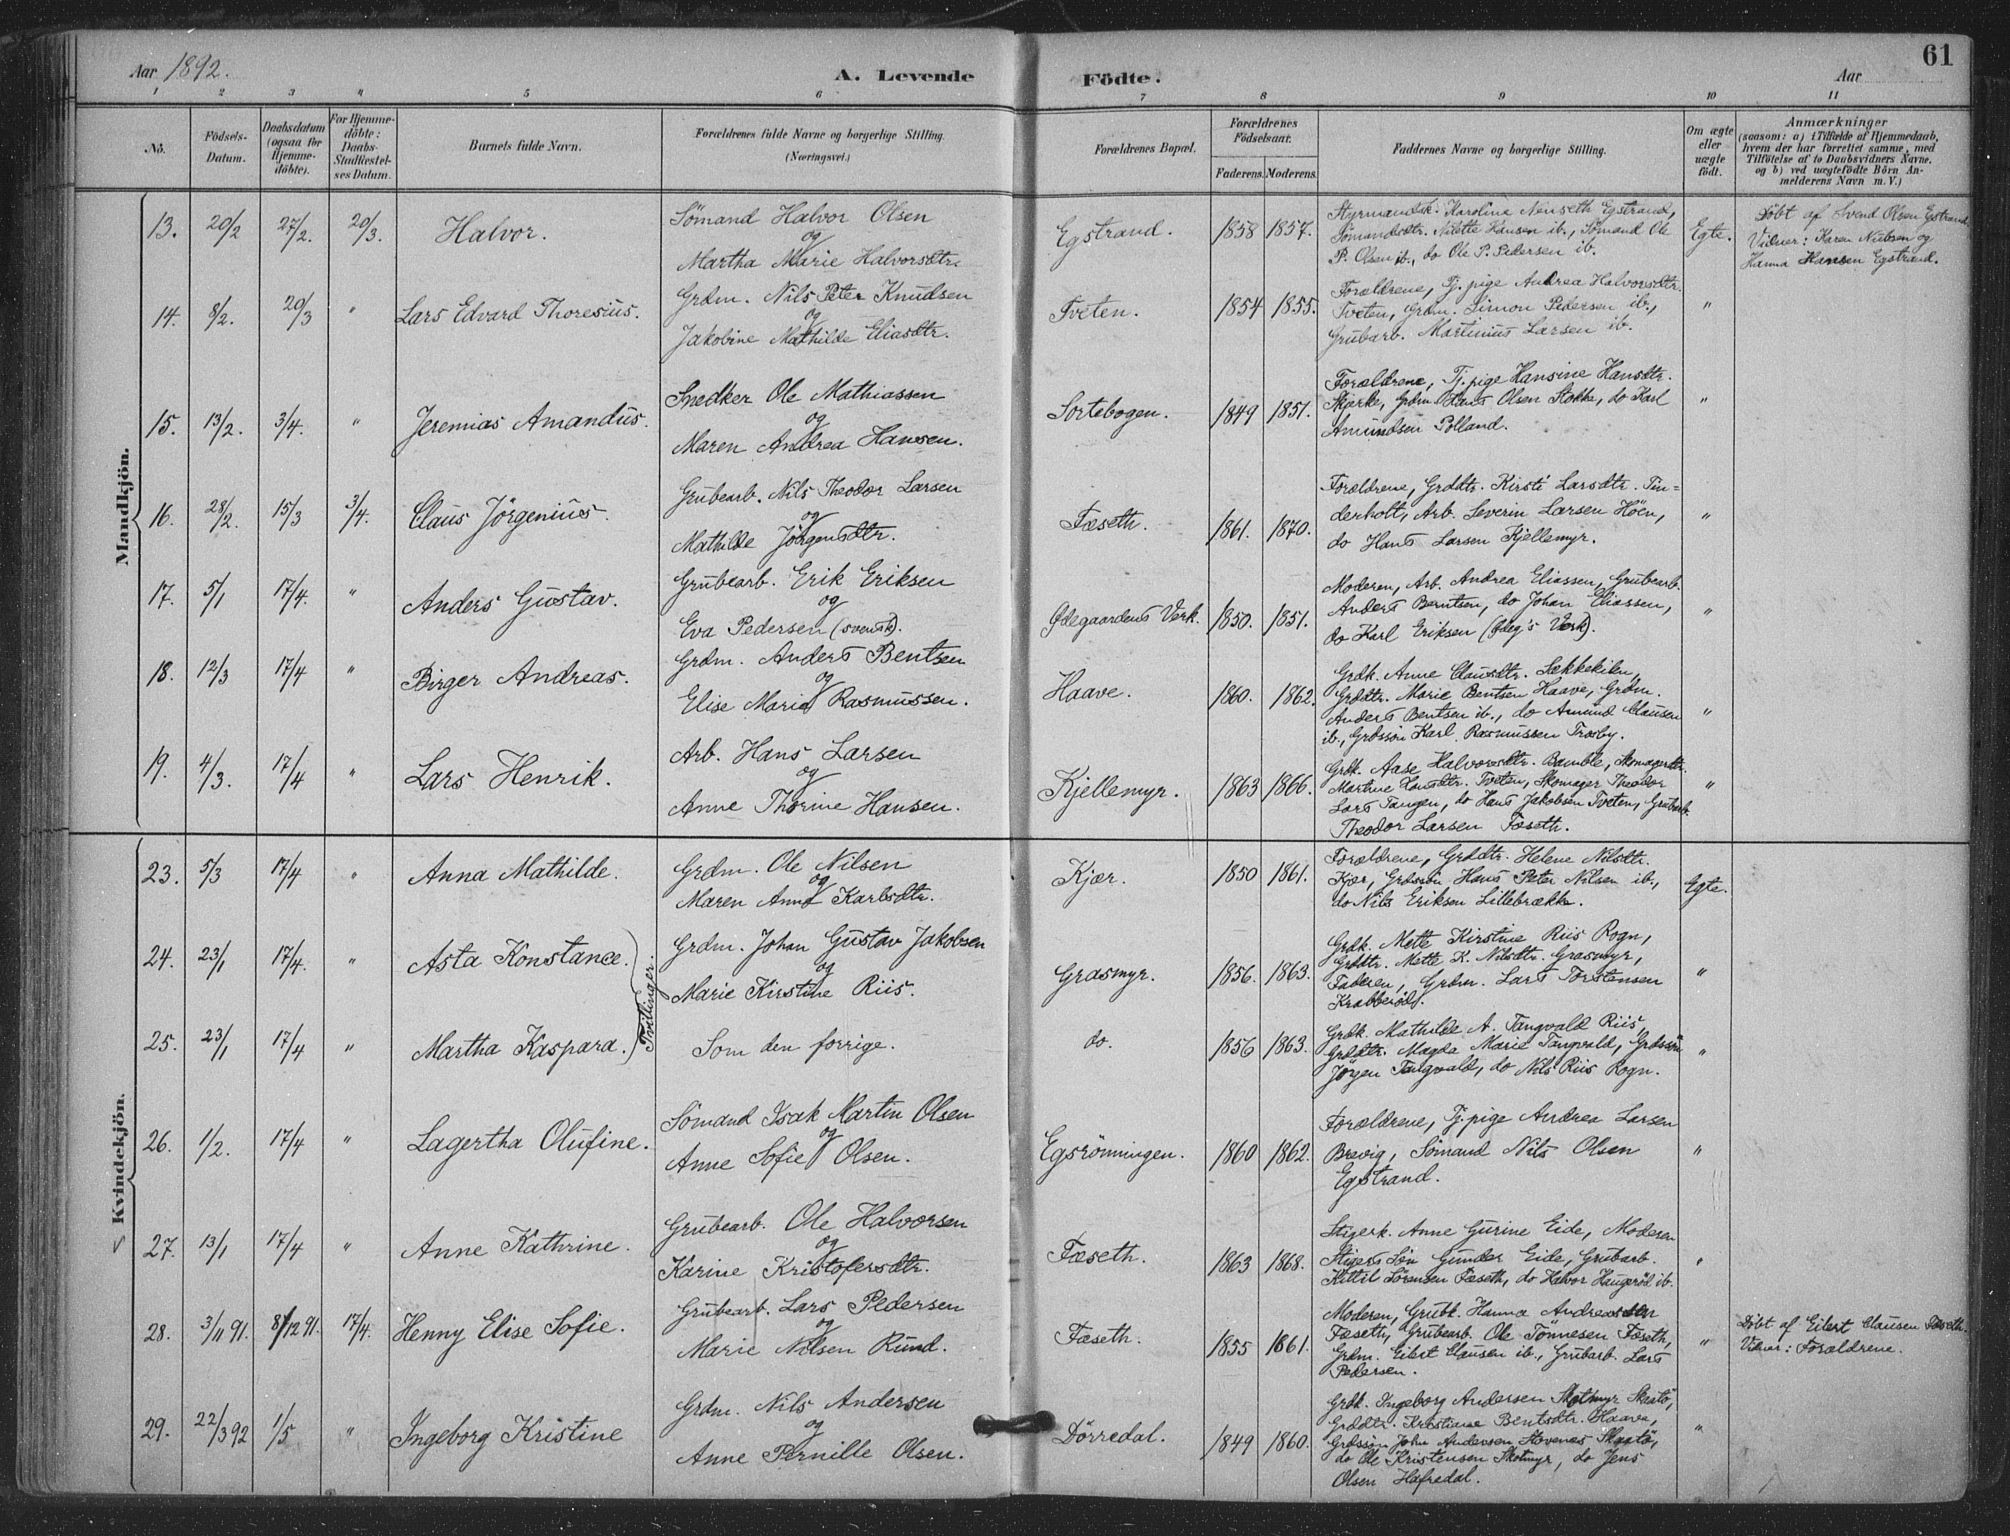 Aar 1892.
A. Levende Födte.
Aar
61
1 2 3 4 5 6 7 8 9 10 11
No.
Födsels-Datum.
Daabsdatum (ogsaa for Hjemme-döbte).
For Hjemme-döbte: Daabs-Stadfæstel-ses Datum.
Barnets fulde Navn.
Forældrenes fulde Navne og borgerlige Stilling. (Næringsvei.)
Forældrenes Bopæl.
Forældrenes Födselsaar.
Faderens. Moderens.
Faddernes Navne og borgerlige Stilling.
Om ægte eller uægte födt.
Anmærkninger
(saasom: a) i Tilfælde af Hjemmedaab,
hvem der har forrettet samme, med
Tilföielse af to Daabsvidners Navne.
og b) ved uægtefödte Börn An-
melderens Navn m. V.)
Mandkjön.
13. 20/2 27/2. 20/3. Halvor.
Sömand Halvor Olsen
og
Martha Marie Halvorsdtr.
Egstrand. 1858 1857.
Styrmandsk. Karolina Nenseth Egstrand,
Sömandsdtr. Nilette Hansen ib., Sömand Ole
P. Olsen ib., do Ole P. Pedersen ib.
Egte.
Döbt af Svend Olsen Egstrand.
Vidner: Karen Nielsen og
Hanna Hansen Egstrand.
14. 8/2. 20/3 " Lars Edvard Thoresius.
Grdm. Nils Peter Knudsen
og
Jakobine Mathilde Eliasdtr.
Tveten. 1854 1855.
Forældrene, Tj.pige Andrea Halvorsdtr.
Tveten, Grdm. Simon Pedersen ib.,
Grubarb. Martinius Larsen ib.
"
15. 13/2. 3/4. " Jeremias Amandus.
Snedker Ole Mathiassen
og
Maren Andrea Hansen.
Sortebogen. 1849 1851.
Forældrene, Tj.pige Hansine Hansdtr.
Skjerke, Grdm. Olsen Stokke, do Karl
Amundsen Polland.
"
16. 28/2. 15/3 3/4. Claus Jörgenius.
Grubearb. Nils Theodor Larsen
og
Mathilde Jörgensdtr.
Fæseth. 1861. 1870.
Forældrene, Grddtr. Kirsti Larsdtr. Tin-
derholt, Arb. Severin Larsen Höen,
do Hans Larsen Kjellemyr.
"
17. 5/1 17/4. " Anders Gustav.
Grubearb. Erik Eriksen
og
Eva Pedersen (svensk).
Ødegaardens Verk. 1850. 1851.
Moderen, Arb. Andrea Eliassen, Grubearb.
Anders Berntsen, do Johan Eliassen,
do Karl Eriksen (Ødeg's Verk).
"
18. 12/3 17/4 " Birger Andreas.
Grdm. Anders Bentsen
og
Elise Marie Rasmussen.
Haave. 1860. 1862.
Grdk. Anne Clausdtr. Lækkekilen,
Grddtr. Marie Bentsen Haave, Grdm.
Anders Bentsen ib., do Amund Clausen
ib., Grdssön Karl Rasmussen Trosby.
"
19. 4/3. 17/4 " Lars Henrik.
Arb. Hans Larsen
og
Anne Thorine Hansen.
Kjellemyr. 1863 1866.
Grdk. Aase Halvorsdtr. Bamble, Skomagerdtr.
Martine Hansdtr. Tveten, Skomager Theodor
Lars Tangen, do Hans Jakobsen Tveten, Grubarb.
Theodor Larsen Fæseth.
"
Kvindekjön.
23. 5/3 17/4 " Anna Mathilde.
Grdm. Ole Nilsen
og
Maren Anne Karlsdtr.
Kjær. 1850 1861.
Forældrene, Grddtr. Helene Nilsdtr.
Kjær, Grdssön Hans Peter Nilsen ib.,
do Nils Eriksen Lillebrække.
Egte.
24. 23/1 17/4. " Asta Konstance.
Tvillinger.
Grdm. Johan Gustav Jakobsen
og
Marie Kirstine Riis.
Grasmyr. 1856. 1863.
Grdk. Mette Kirstine Riis Rogn,
Grddtr. Mette K. Nilsdtr. Grasmyr,
Faderen, Grdm. Lars Torstensen
Krabberöd.
"
25. 23/1 17/4 " Martha Kaspara.
Som den forrige.
do. 1856 1863.
Grdk. Mathilde A. Tangvald Riis,
Grddtr. Magda Marie Tangvald, Grdssön
Jörgen Tangvald, do Nils Riis Rogn.
"
26. 1/2. 17/4 " Lagertha Olufine.
Sömand Isak Martin Olsen
og
Anne Sofie Olsen.
Egsrönningen. 1860 1862.
Forældrene, Tj.pige Andrea Larsen
Brevig, Sömand Nils Olsen
Egstrand.
"
27. 13/1 17/4 " Anne Kathrine.
Grubearb. Ole Halvorsen
og
Karine Kristofersdtr.
Fæseth. 1863 1868.
Stigerk. Anne Gurine Eide, Moderen
Stigers Sön Gunder Eide, Grubarb.
Kittil Sörensen Fæseth, do Halvor Haugeröd ib.
"
28. 3/11 91. 8/12 91. 17/4. Henny Elise Sofie.
Grubearb. Lars Pedersen
og
Marie Nilsen Rund.
Fæseth. 1855 1861.
Moderen, Grubk. Hanna Andreasdtr
Fæseth, Grubearb. Ole Tönnesen Fæseth,
Grdm. Eilert Clausen ib., Grubarb. Lars
Pedersen.
"
Döbt af Eilert Clausen Fæseth.
Vidner: Forældrene.
29. 22/3 92 1/5 " Ingeborg Kristine
Grdm. Nils Andersen
og
Anne Pernille Olsen.
Dörredal. 1849 1860.
Grdk. Ingeborg Andersen Skotmyr Skaatö,
Grddtr. Kristiane Bentsdtr. Haave,
Grdssön John Andersen Stovenæs Skaatö,
do Ole Kristensen Skotmyr, do Jens
Olsen Hafredal.
"